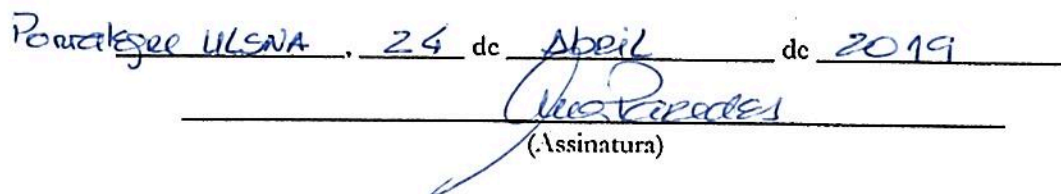 Portalegre ULSNA, 24 de Abril de 2019
Paredes
(Assinatura)